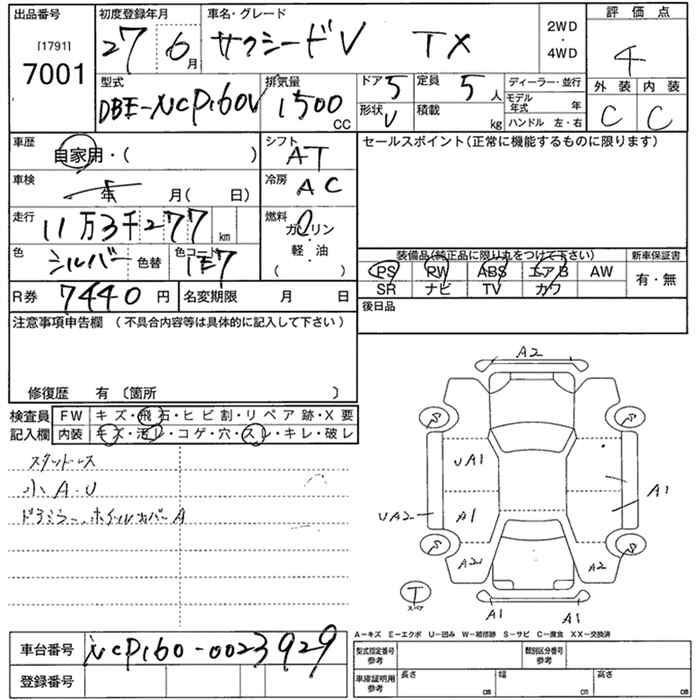 出品番号
[1791]
7001
初度登録年月
27 6月
車名・グレード
サクシードV TX
2WD
・
4WD
評価点
4
外装 内装
C C
型式
DBE-NCP160V
排気量
1500
CC
ドア 5
定員 5人
形状 V
積載 kg
ディーラー・並行
モデル年式 年
ハンドル 左・右
車歴
自家用・( )
シフト
AT
車検
年 月( 日)
冷房
AC
走行
11万3千277
km
燃料
ガソリン
軽・油
( )
色
シルバー
色替
色コード
1E7
R券 7440円
名変期限 月 日
セールスポイント(正常に機能するものに限ります)
装備品(純正品に限り丸をつけて下さい)
PS PW ABS エアB AW
SR ナビ TV カワ
新車保証書
有・無
後日品
注意事項申告欄 (不具合内容等は具体的に記入して下さい)
修復歴 有 〔箇所 〕
検査員
記入欄
FW キズ・飛石・ヒビ割・リペア跡・X要
内装 キズ・汚レ・コゲ・穴・スレ・キレ・破レ
スタッドレス
小A.U
ドアミラー、ホイルカバーA
A2
S S
UA1
A1
UA2
A1
S S
A2 A2
T
スペア
A1 A1
A-キズ E-エクボ U-凹み W-補修跡 S-サビ C-腐食 XX-交換済
車台番号 NCP160-0023929
登録番号
型式指定番号
参考
類別区分番号
参考
車庫証明用
参考
長さ cm
幅 cm
高さ cm